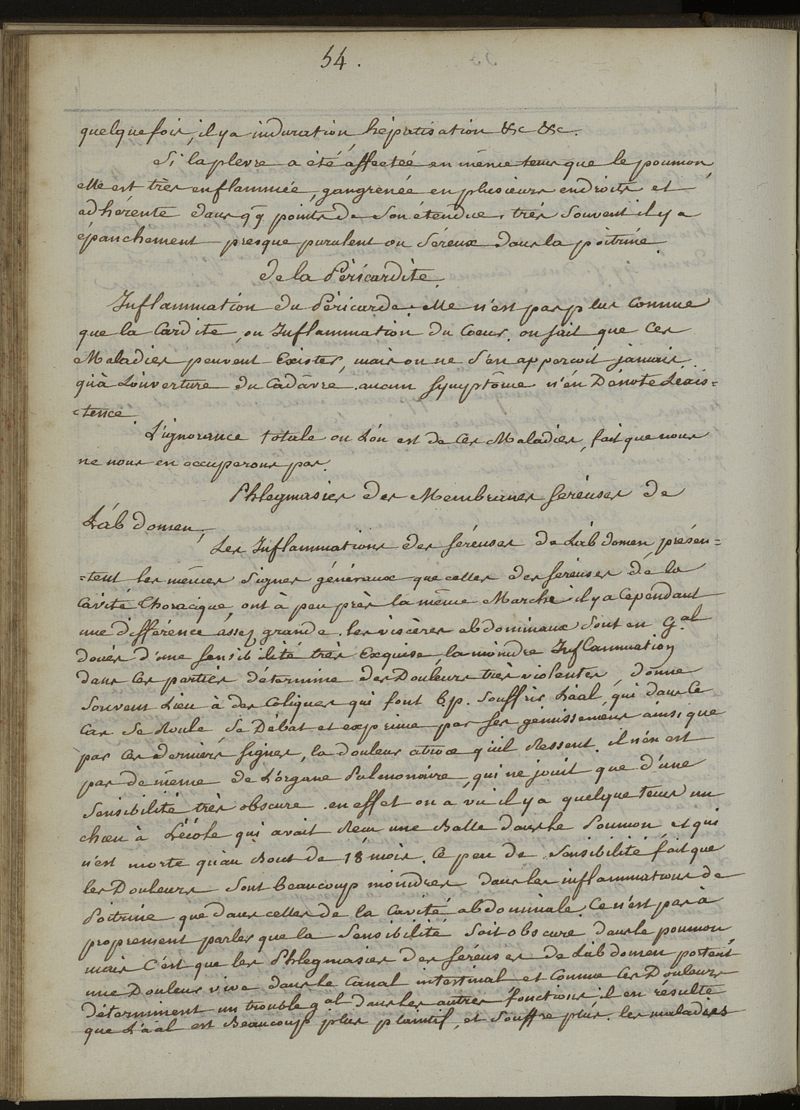 54.
quelque fois, il y a induration, hépatisation &c &c.
Si la plevre a été affectée en même tems que le poumon,
elle est très enflammée, gangrénée en plusieurs endroits et
adhérente dans qq points de son étendue, très souvent il y a
épanchement presque purulent ou séreux dans la poitrine.
de la Péricardite.
Inflammation du Péricarde. elle n'est pas plus connue
que la Cardite, ou Inflammation du Coeur. on sait que Ces
Maladies peuvent Exister, mais on ne s'en apperçoit jamais
qu'à L'ouverture du Cadâvre. aucun symptôme n'en Dénote L'exis-
-tence.
L'ignorance totale ou L'on est de Ces Maladies, fait que nous
ne nous en occuperons pas.
Phlegmasies des Membranes séreuses de
L'abdomen,
Les Inflammations des séreuses de L'abdomen présen-
-tent les mêmes signes généraux que celles des séreuses de la
Cavité Thoracique, ont à peu près la même Marche, il y a Cependant
une différence assez grande. les viscères abdominaux sont en gal
doués d'une sensibilité très Exquise, la moindre Inflammation
dans Ces parties détermine des Douleurs très violentes, donne
souvent Lieu à des Coliques qui font bp. souffrir L'aal, qui dans Ce
Cas se Roule, se Débat et exprime par ses gemissemens ainsi que
par Ces derniers signes, la douleur atroce qu'il Ressent. il n'en est
pas de même de L'organe Pulmonaire, qui ne jouit que d'une
sensibilité très obscure. en effet on a vu il y a quelque tems un
chien à L'école qui avait Reçu une Balle dans le Poumon, et qui
n'est morte qu'au Bout de 18 mois. Ce peu de sensibilité fait que
les Douleurs sont beaucoup moindres dans les inflammations de
Poitrine que dans celles de la Cavité abdominale. Ce n'est pas à
proprement parler que la sensibilité soit obscure dans le poumon,
mais C'est que les Phlegmasies des séreuses de L'abdomen portent
une Douleur vive dans le Canal intestinal et Comme Ces Douleurs
déterminent un trouble gal dans les autres fonctions, il en résulte
que L'aal est Beaucoup plus plaintif, et souffre plus. les maladies